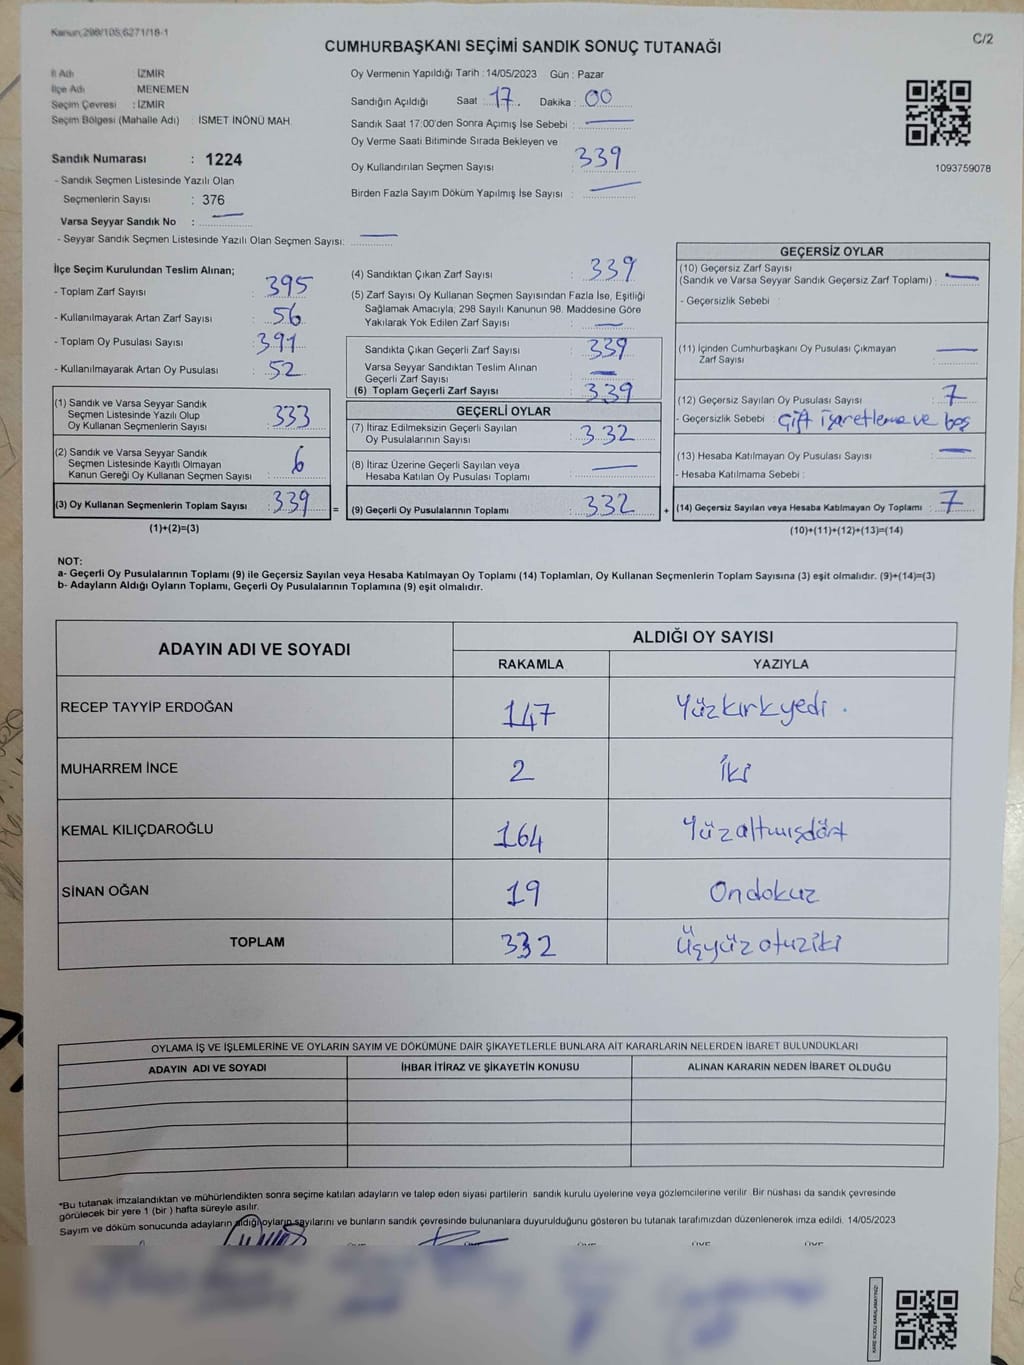 Kanun;298/105,6271/18-1
C/2
CUMHURBAŞKANI SEÇİMİ SANDIK SONUÇ TUTANAĞI
İl Adı : İZMİR
İlçe Adı : MENEMEN
Seçim Çevresi : İZMİR
Seçim Bölgesi (Mahalle Adı) : İSMET İNÖNÜ MAH.
Sandık Numarası : 1224
- Sandık Seçmen Listesinde Yazılı Olan
Seçmenlerin Sayısı : 376
Varsa Seyyar Sandık No : —
- Seyyar Sandık Seçmen Listesinde Yazılı Olan Seçmen Sayısı: —
Oy Vermenin Yapıldığı Tarih : 14/05/2023 Gün : Pazar
Sandığın Açıldığı Saat : 17 Dakika : 00
Sandık Saat 17:00'den Sonra Açımış İse Sebebi : —
Oy Verme Saati Bitiminde Sırada Bekleyen ve
Oy Kullandırılan Seçmen Sayısı : 339
Birden Fazla Sayım Döküm Yapılmış İse Sayısı : —
1093759078
İlçe Seçim Kurulundan Teslim Alınan;
- Toplam Zarf Sayısı : 395
- Kullanılmayarak Artan Zarf Sayısı : 56
- Toplam Oy Pusulası Sayısı : 391
- Kullanılmayarak Artan Oy Pusulası : 52
(1) Sandık ve Varsa Seyyar Sandık
Seçmen Listesinde Yazılı Olup
Oy Kullanan Seçmenlerin Sayısı : 333
(2) Sandık ve Varsa Seyyar Sandık
Seçmen Listesinde Kayıtlı Olmayan
Kanun Gereği Oy Kullanan Seçmen Sayısı : 6
(3) Oy Kullanan Seçmenlerin Toplam Sayısı : 339 =
(1)+(2)=(3)
(4) Sandıktan Çıkan Zarf Sayısı : 339
(5) Zarf Sayısı Oy Kullanan Seçmen Sayısından Fazla İse, Eşitliği
Sağlamak Amacıyla, 298 Sayılı Kanunun 98. Maddesine Göre
Yakılarak Yok Edilen Zarf Sayısı : —
Sandıkta Çıkan Geçerli Zarf Sayısı : 339
Varsa Seyyar Sandıktan Teslim Alınan
Geçerli Zarf Sayısı : —
(6) Toplam Geçerli Zarf Sayısı : 339
GEÇERLİ OYLAR
(7) İtiraz Edilmeksizin Geçerli Sayılan
Oy Pusulalarının Sayısı : 332
(8) İtiraz Üzerine Geçerli Sayılan veya
Hesaba Katılan Oy Pusulası Toplamı : —
(9) Geçerli Oy Pusulalarının Toplamı : 332 +
GEÇERSİZ OYLAR
(10) Geçersiz Zarf Sayısı
(Sandık ve Varsa Seyyar Sandık Geçersiz Zarf Toplamı) : —
- Geçersizlik Sebebi :
(11) İçinden Cumhurbaşkanı Oy Pusulası Çıkmayan
Zarf Sayısı : —
(12) Geçersiz Sayılan Oy Pusulası Sayısı : 7
- Geçersizlik Sebebi : Çift işaretleme ve boş
(13) Hesaba Katılmayan Oy Pusulası Sayısı : —
- Hesaba Katılmama Sebebi :
(14) Geçersiz Sayılan veya Hesaba Katılmayan Oy Toplamı : 7
(10)+(11)+(12)+(13)=(14)
NOT:
a- Geçerli Oy Pusulalarının Toplamı (9) ile Geçersiz Sayılan veya Hesaba Katılmayan Oy Toplamı (14) Toplamları, Oy Kullanan Seçmenlerin Toplam Sayısına (3) eşit olmalıdır. (9)+(14)=(3)
b- Adayların Aldığı Oyların Toplamı, Geçerli Oy Pusulalarının Toplamına (9) eşit olmalıdır.
ADAYIN ADI VE SOYADI
ALDIĞI OY SAYISI
RAKAMLA YAZIYLA
RECEP TAYYİP ERDOĞAN 147 Yüzkırkyedi .
MUHARREM İNCE 2 İki
KEMAL KILIÇDAROĞLU 164 Yüzaltmışdört
SİNAN OĞAN 19 Ondokuz
TOPLAM 332 Üçyüzotuziki
OYLAMA İŞ VE İŞLEMLERİNE VE OYLARIN SAYIM VE DÖKÜMÜNE DAİR ŞİKAYETLERLE BUNLARA AİT KARARLARIN NELERDEN İBARET BULUNDUKLARI
ADAYIN ADI VE SOYADI İHBAR İTİRAZ VE ŞİKAYETİN KONUSU ALINAN KARARIN NEDEN İBARET OLDUĞU
*Bu tutanak imzalandıktan ve mühürlendikten sonra seçime katılan adayların ve talep eden siyasi partilerin sandık kurulu üyelerine veya gözlemcilerine verilir. Bir nüshası da sandık çevresinde
görülecek bir yere 1 (bir ) hafta süreyle asılır.
Sayım ve döküm sonucunda adayların aldığı oyların sayılarını ve bunların sandık çevresinde bulunanlara duyurulduğunu gösteren bu tutanak tarafımızdan düzenlenerek imza edildi. 14/05/2023